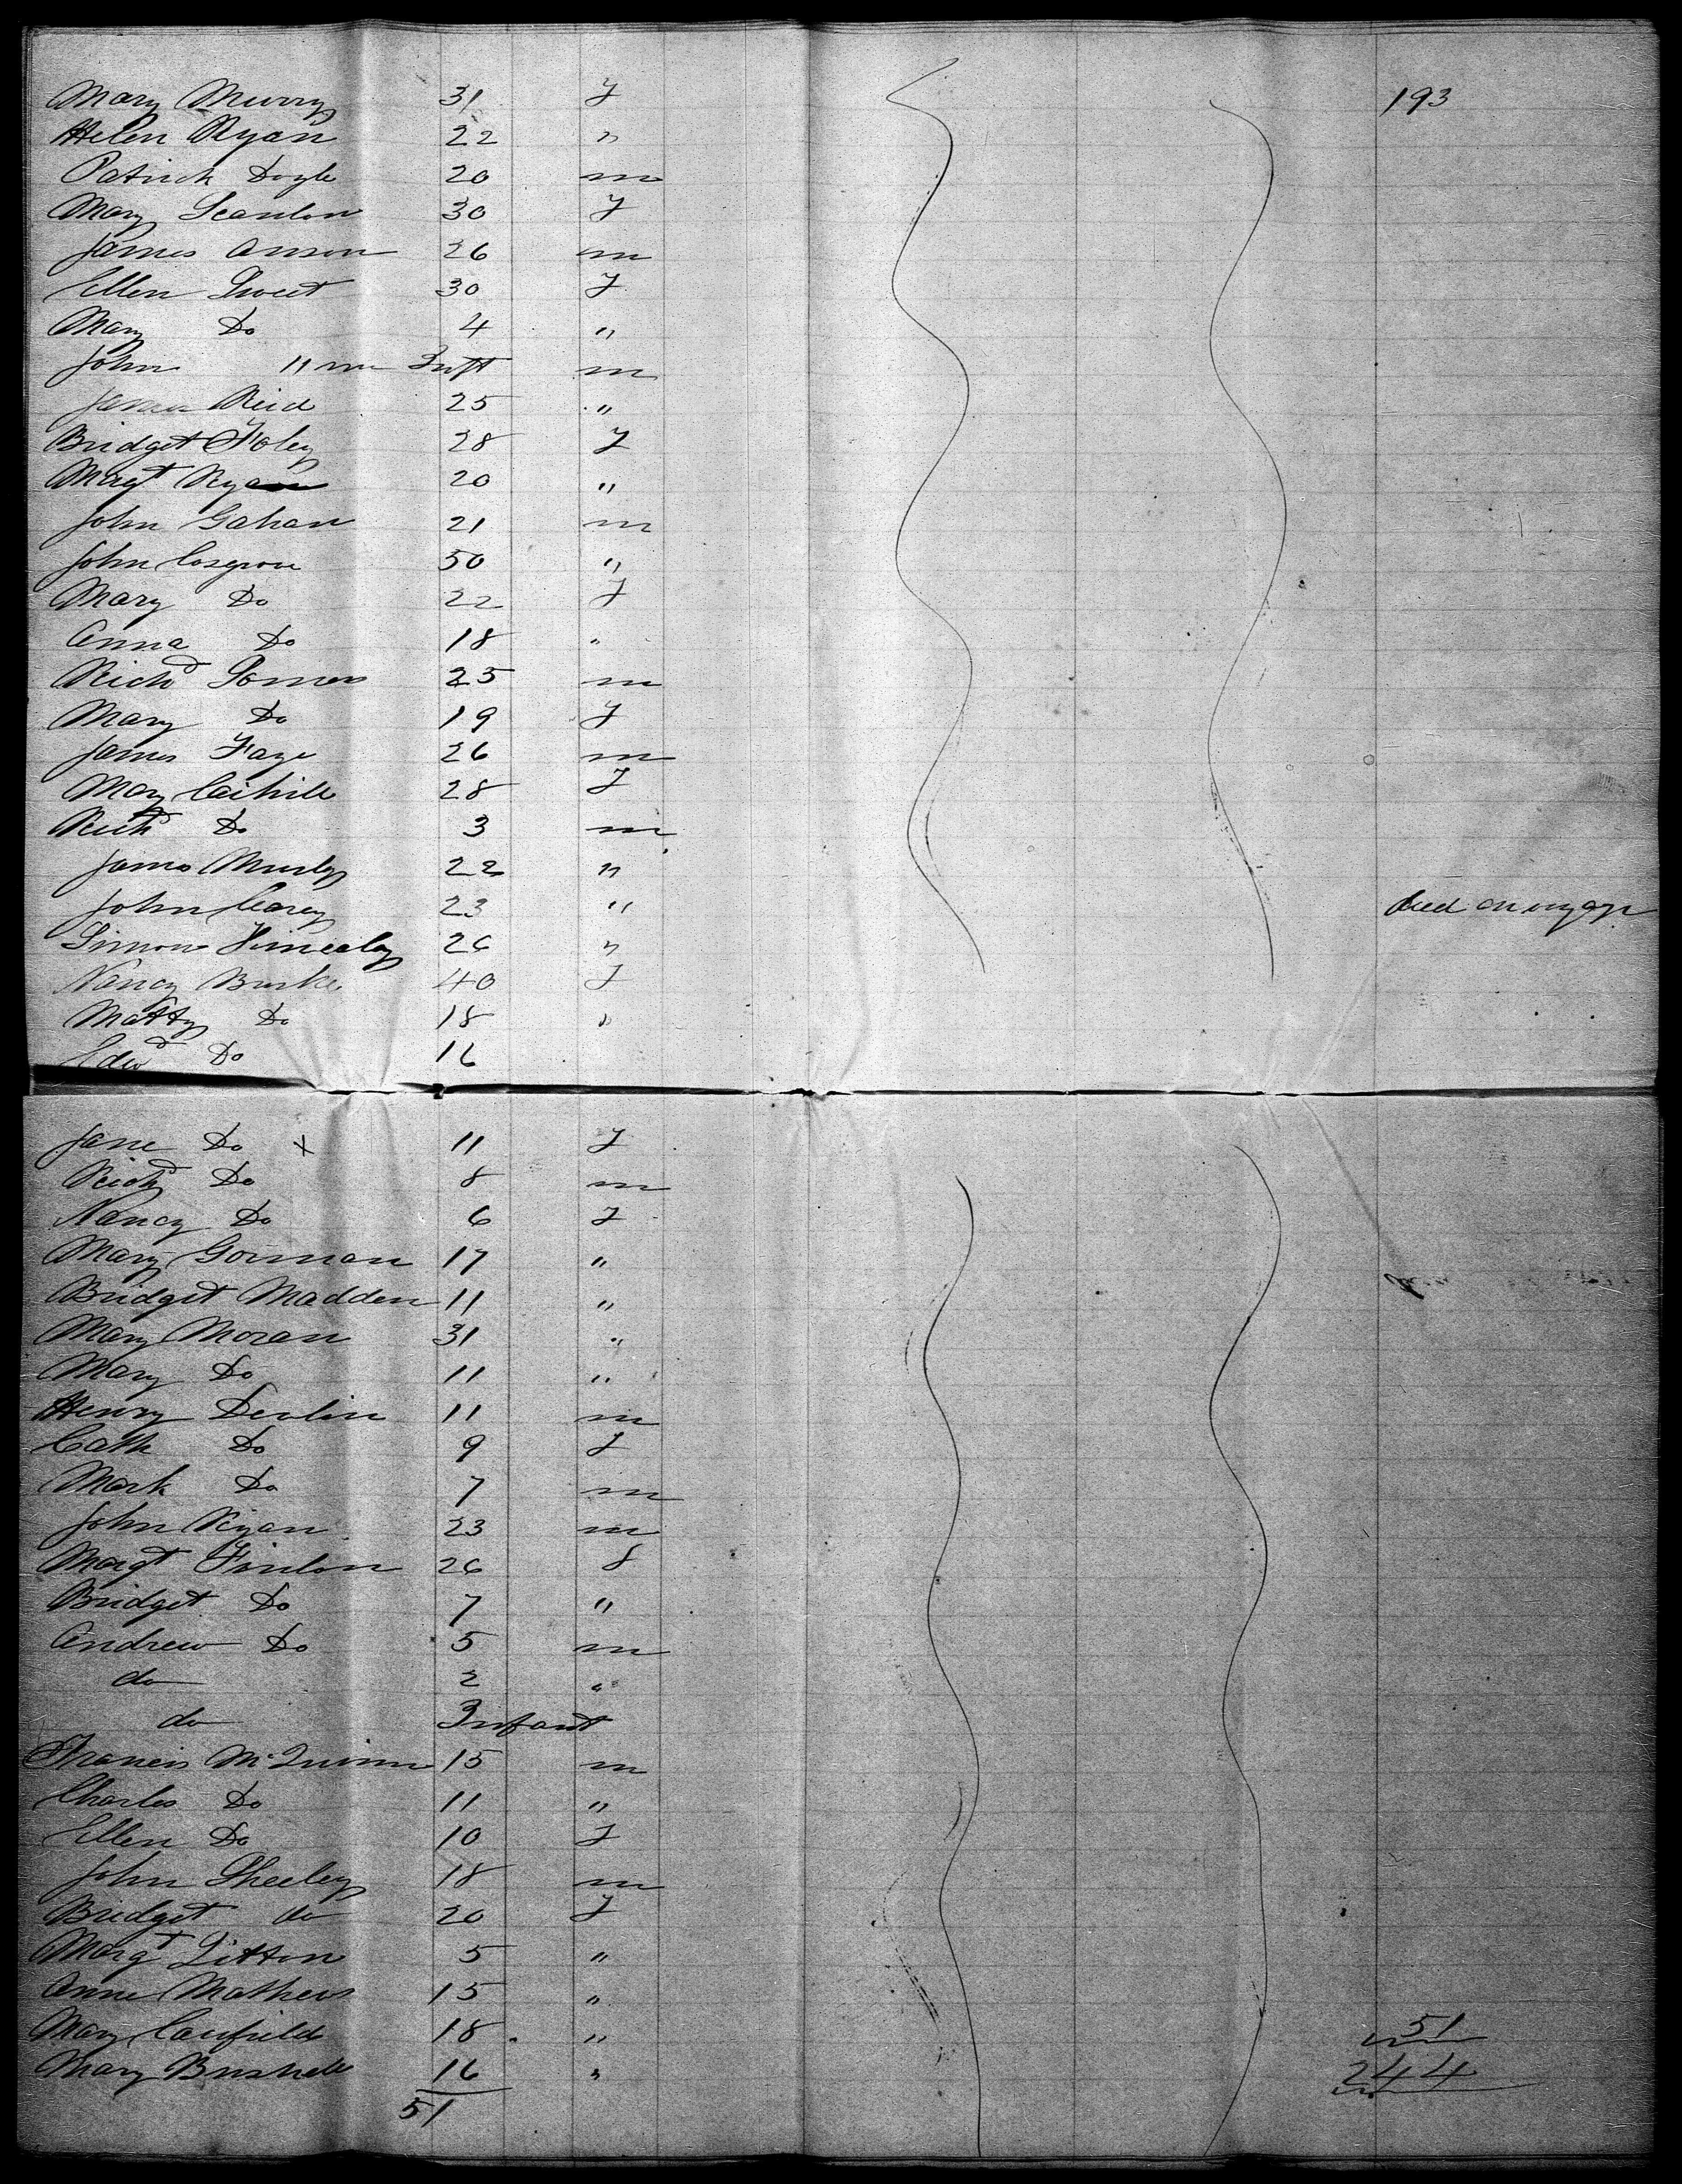 Mary Murry 31 F 193
Helen Ryan 22 "
Patrick Doyle 20 m
Mary Scanlon 30 F
James Anson 26 m
Ellen Sweet 30 F
Mary Do 4 "
John 11 m Inft m
James Reid 25 "
Bridget Foley 28 F
Magt Ryan 20 "
John Gahan 21 m
John Cosgrove 50 "
Mary Do 22 F
Anna Do 18 "
Richd Somers 25 m
Mary Do 19 F
James Faye 26 m
Mary Caihill 28 F
Richd Do 3 m
James 22 "
John Carey 23 " died on voyage
Simon 26 "
Nancy Burke 40 F
Matty Do 18 "
Edwd Do 16
Jane Do x 11 F
Richd Do 8 m
Nancy Do 6 F
Mary Gorman 17 "
Bridget Madden 11 "
Mary Moran 31 "
Mary Do 11 "
Henry Devlin 11 m
Cath Do 9 F
Mark Do 7 m
John Ryan 23 m
Margt Finlon 26 f
Bridget Do 7 "
Andrew Do 5 m
do 2 "
do Infant
Francis McQuinn 15 m
Charles Do 11 "
Ellen Do 10 F
John Sheeley 18 m
Bridget do 20 F
Margt Litton 5 "
Anne Mathews 15 "
Mary Canfield 18 " 51
Mary Bushell 16 " 244
51